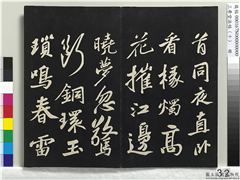 首同夜直卧
看椽燭高
花摧江邊
曉夢忽驚
斷銅環玉
鎖鳴春雷
32